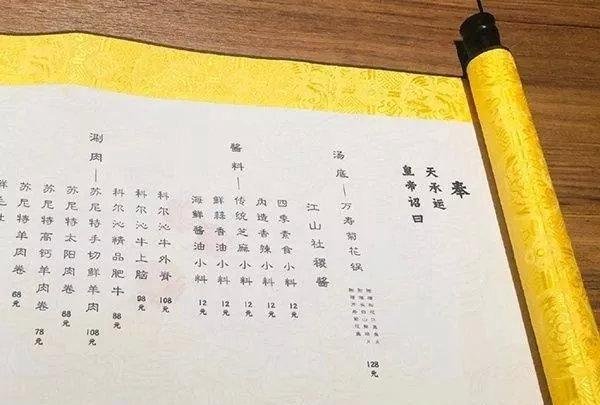 奉
天承运
皇帝诏曰
汤底—万寿菊花锅
128元
江山社稷醬
醬料—
四季素食小料 12元
內造香辣小料 12元
传统芝麻小料 12元
鲜蒜香油小料 12元
海鲜醬油小料 12元
涮肉—
科尔沁牛外脊 108元
科尔沁牛上脑 98元
科尔沁精品肥牛 88元
苏尼特手切鲜羊肉 108元
苏尼特太阳肉卷 68元
苏尼特高钙羊肉卷 78元
苏尼特羊肉卷 68元
鲜毛肚